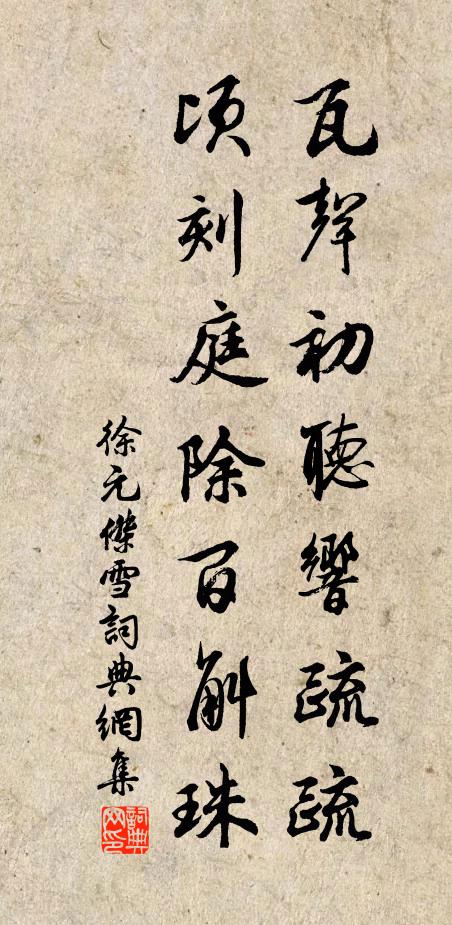 瓦聲初聽響疏疏
頃刻庭除百斛珠
徐元傑雪詞典網集
詞典網印